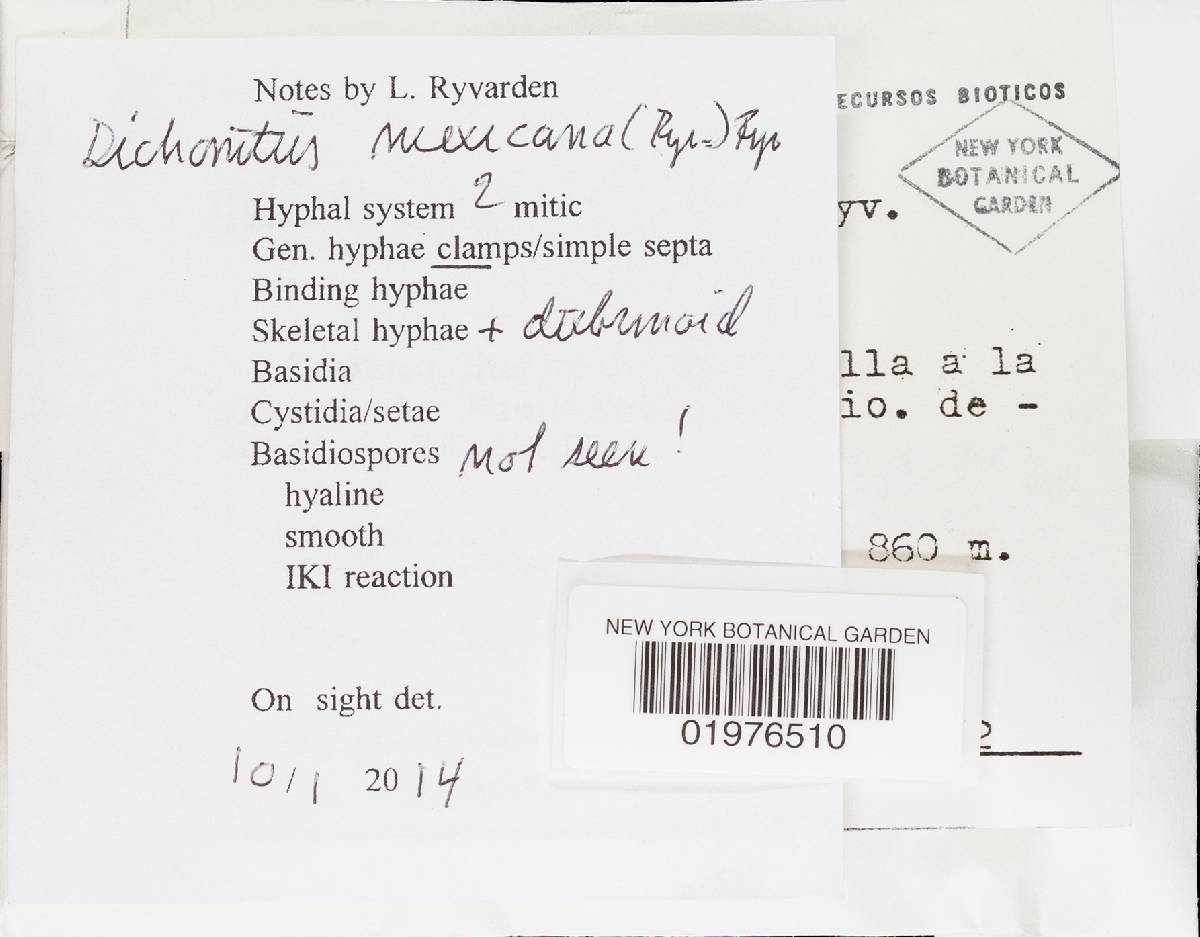 Notes by L. Ryvarden
Dichomitus mexicana (Ryv.) Ryv
Hyphal system 2 mitic
Gen. hyphae clamps/simple septa
Binding hyphae
Skeletal hyphae +
Basidia
Cystidia/setae
Basidiospores not seen!
hyaline
smooth
IKI reaction
On sight det.
10/1 2014
ECURSOS BIOTICOS
NEW YORK
BOTANICAL
GARDEN
yv.
lla a la
io. de -
860 m.
NEW YORK BOTANICAL GARDEN
01976510
2